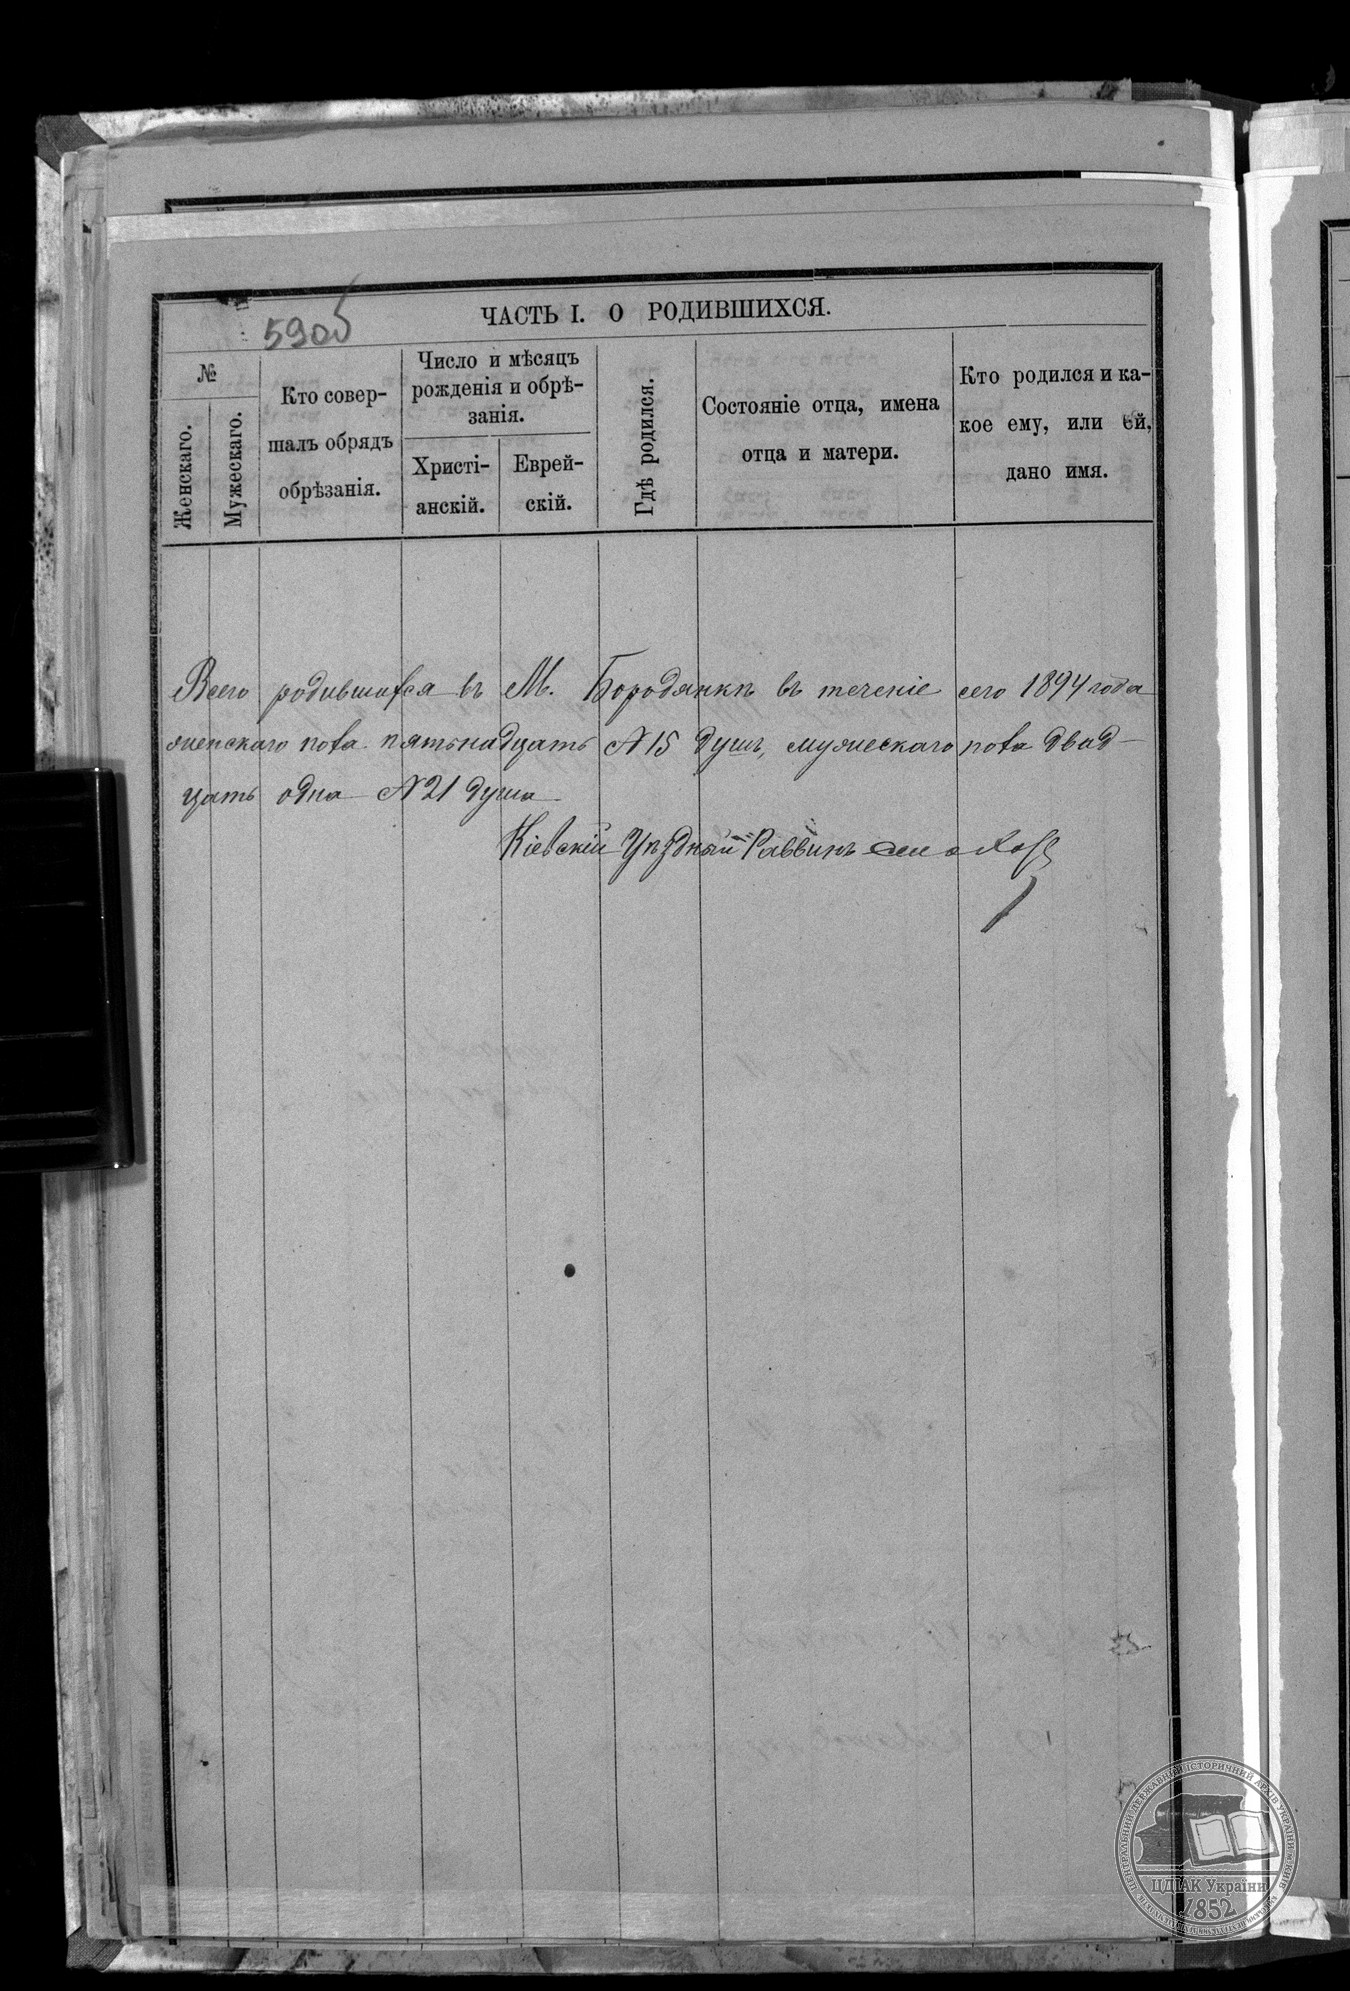 590б
ЧАСТЬ I. О РОДИВШИХСЯ.
№
Женскаго.
Мужескаго.
Кто совер-
шалъ обрядъ
обрѣзанія.
Число и мѣсяцъ
рожденія и обрѣ-
занія.
Христі-
анскій.
Еврей-
скій.
Гдѣ родился.
Состояніе отца, имена
отца и матери.
Кто родился и ка-
кое ему, или ей,
дано имя.
Всего родившихся въ М. Бородянкѣ въ теченіе сего 1894 года
женскаго пола пятьнадцать №15 душъ, мужескаго пола двад-
цать одна №21 душа
Кіевскій Уѣздный Раввинъ
ЦЕНТРАЛЬНИЙ ДЕРЖАВНИЙ ІСТОРИЧНИЙ АРХІВ УКРАЇНИ М.КИЇВ
ЦДІАК України
1852